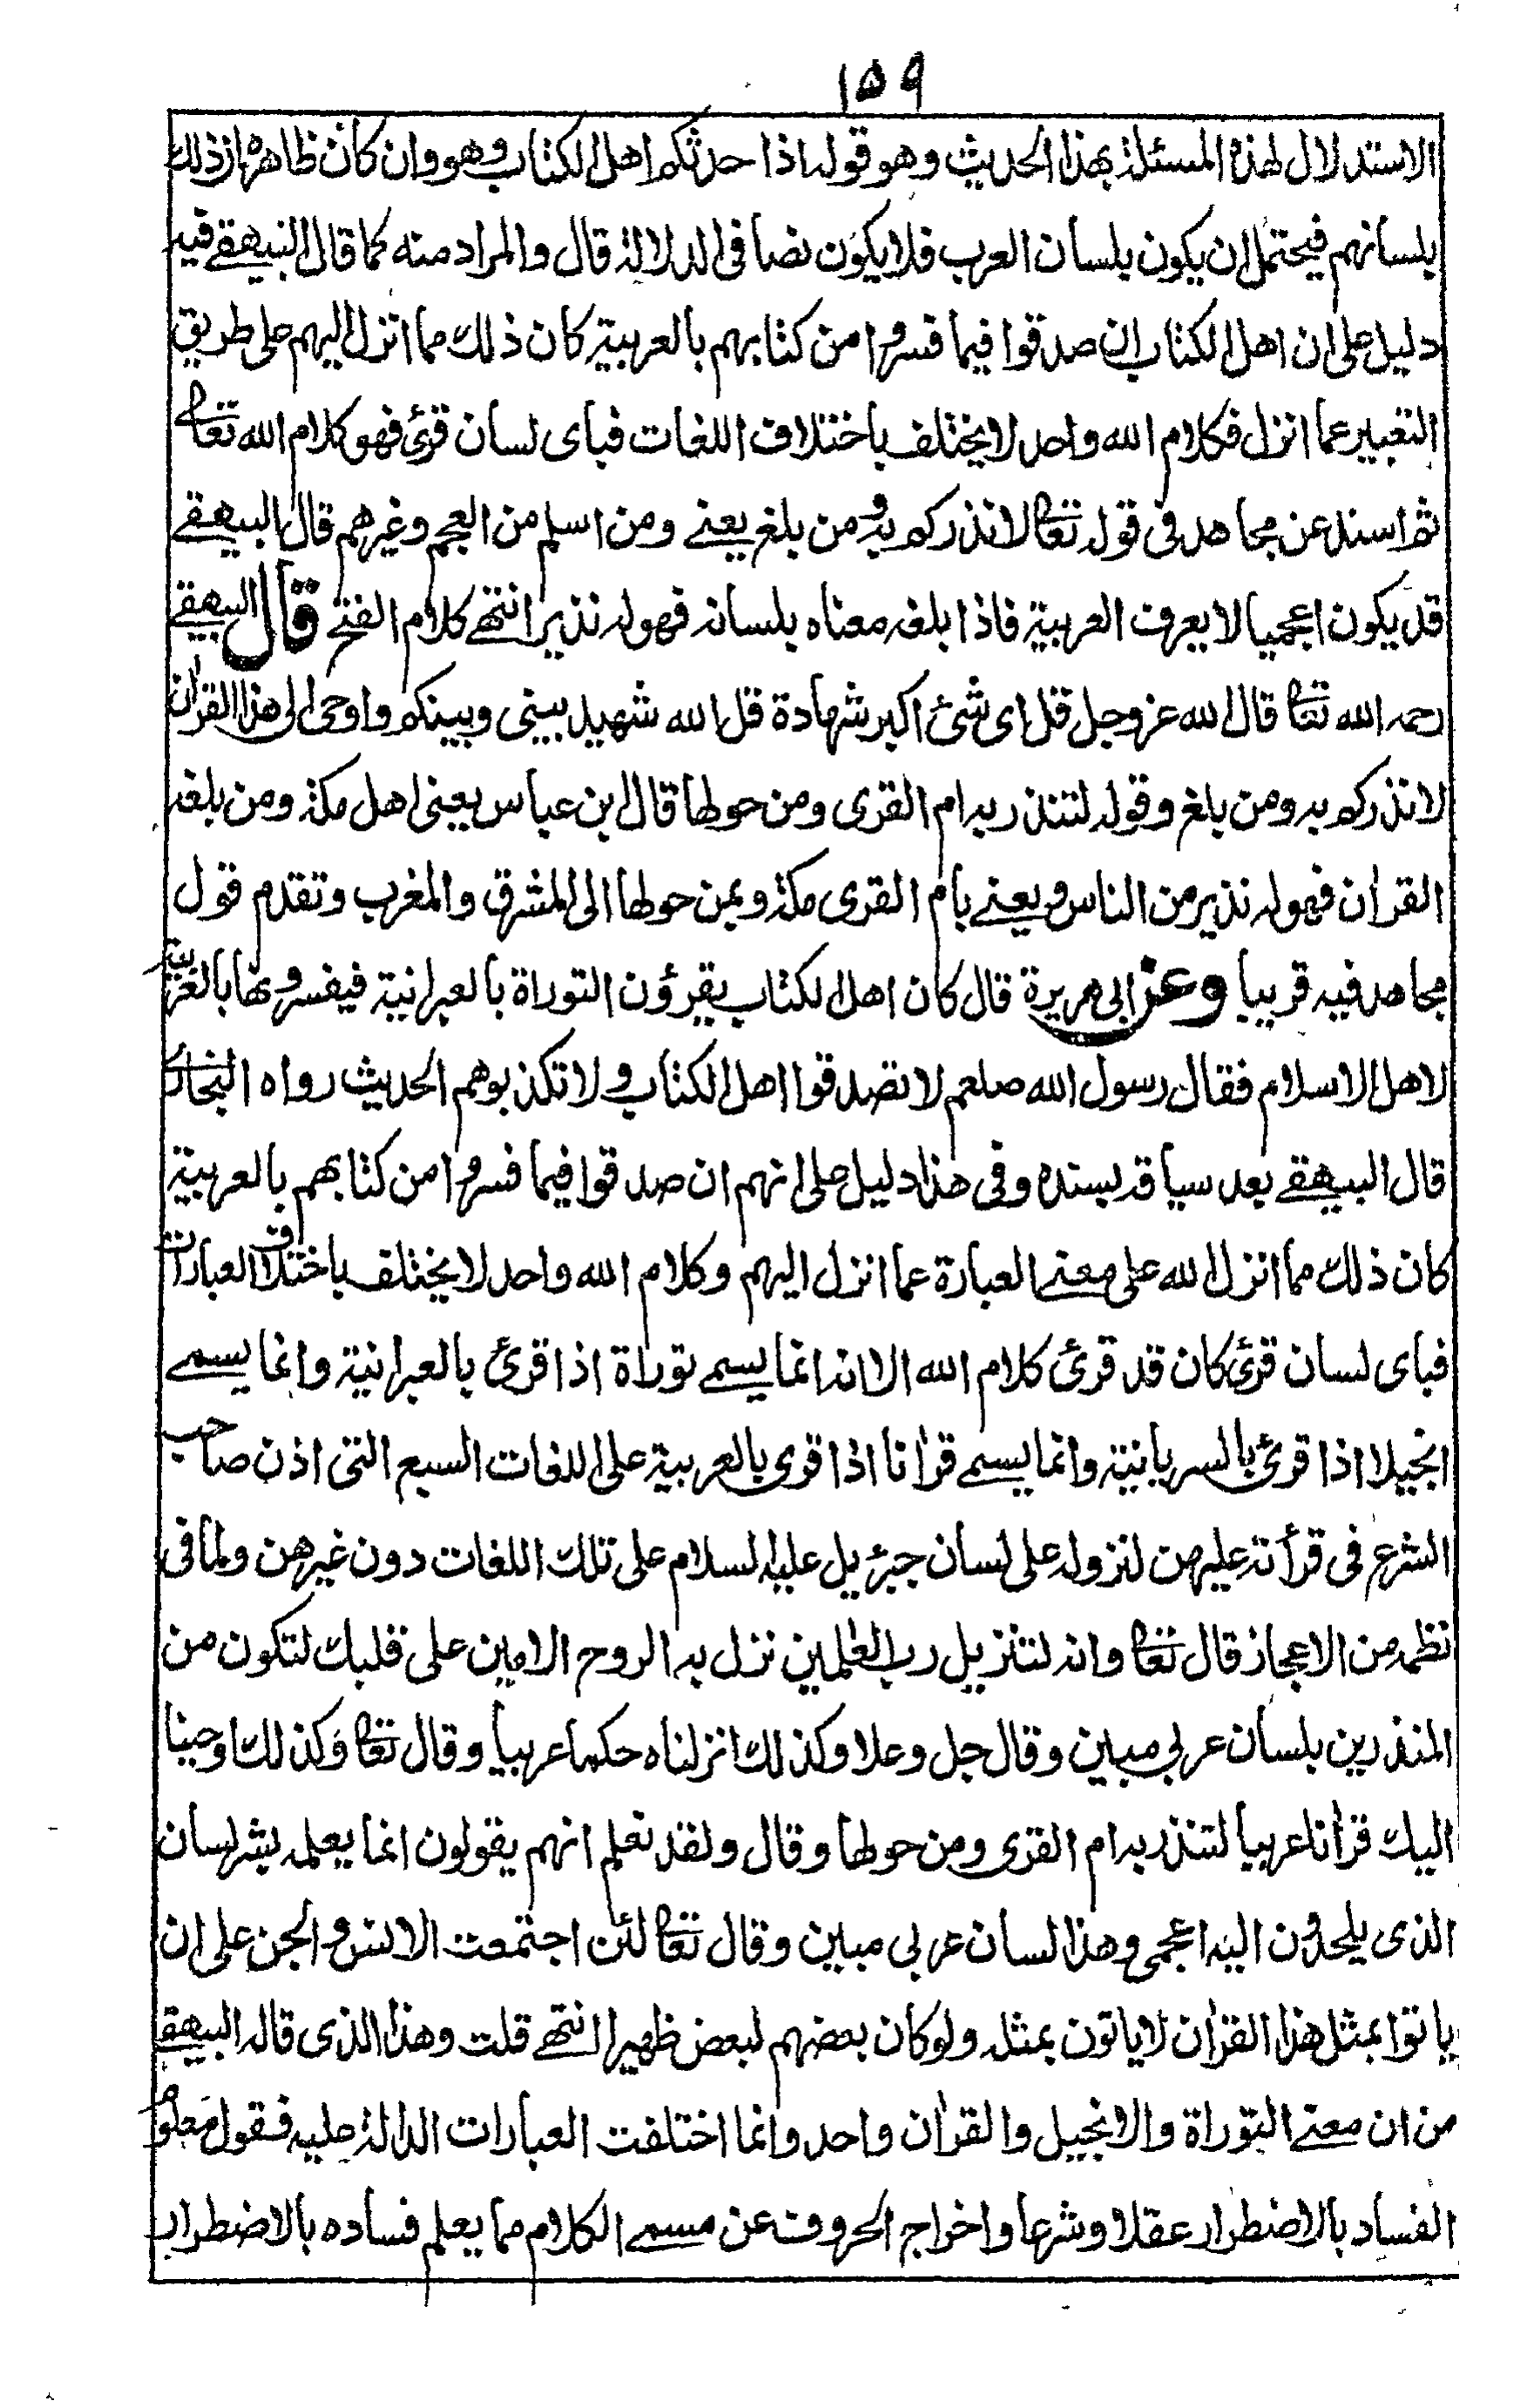 ١٥٩
الاستدلال لهذه المسئلة بهذا الحديث وهو قوله اذا حدثكم اهل الكتاب وهو وان كان ظاهره ان ذلك
بلسانهم فيحتمل ان يكون بلسان العرب فلا يكون نصا فى الدلالة قال والمراد منه كما قال البيهقے فيه
دليل على ان اهل الكتاب ان صدقوا فيما فسروا من كتابهم بالعربية كان ذلك مما انزل اليهم على طريق
التعبير عما انزل فكلام الله واحد لا يختلف باختلاف اللغات فباى لسان قرئ فهو كلام الله تعالى
ثم اسند عن مجاهد فى قوله تعالى لانذركم به ومن بلغ يعنے ومن اسلم من العجم وغيرهم قال البيهقے
قد يكون اعجميا لا يعرف العربية فاذا بلغه معناه بلسانه فهو له نذير انتهے كلام الفتح قال البيهقے
رحمه الله تعالى قال الله عز وجل قل اى شئ اكبر شهادة قل الله شهيد بينى وبينكم واوحى الى هذا القراٰن
لانذركم به ومن بلغ وقوله لتنذر به ام القرى ومن حولها قال ابن عباس يعنى اهل مكة ومن بلغه
القراٰن فهو له نذير من الناس ويعنے بام القرى مكة وبمن حولها الى المشرق والمغرب وتقدم قول
مجاهد فيه قريبا وعن ابى هريرة قال كان اهل الكتاب يقرؤن التوراة بالعبرانية فيفسرونها بالعربية
لاهل الاسلام فقال رسول الله صلعم لا تصدقوا اهل الكتاب ولا تكذبوهم الحديث رواه البخارى
قال البيهقے بعد سياقه بسنده وفى هذا دليل على انهم ان صدقوا فيما فسروا من كتابهم بالعربية
كان ذلك مما انزل الله على معنے العبارة عما انزل اليهم وكلام الله واحد لا يختلف باختلاف العبارات
فباى لسان قرئ كان قد قرئ كلام الله الا انه انما يسمے توراة اذا قرئ بالعبرانية وانما يسمے
انجيلا اذا قرئ بالسريانية وانما يسمے قراٰنا اذا قرى بالعربية على اللغات السبع التى اذن صاحب
الشرع فى قرأته عليهن لنزوله على لسان جبرئيل عليه السلام على تلك اللغات دون غيرهن ولما فى
نظمه من الاعجاز قال تعالى وانه لتنزيل رب العٰلمين نزل به الروح الامين على قلبك لتكون من
المنذرين بلسان عربى مبين وقال جل وعلا وكذلك انزلناه حكما عربيا وقال تعالى وكذلك اوحينا
اليك قراٰنا عربيا لتنذر به ام القرى ومن حولها وقال ولقد نعلم انهم يقولون انما يعلمه بشر لسان
الذى يلحدون اليه اعجمى وهذا لسان عربى مبين وقال تعالى لئن اجتمعت الانس والجن على ان
ياتوا بمثل هذا القراٰن لا ياتون بمثله ولو كان بعضهم لبعض ظهيرا انتهے قلت وهذا الذى قاله البيهقے
من ان معنے التوراة والانجيل والقراٰن واحد وانما اختلفت العبارات الدالة عليه فقول معلوم
الفساد بالاضطرار عقلا وشرعا واخراج الحروف عن مسمے الكلام مما يعلم فساده بالاضطرار